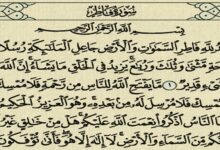 سُورَةُ فَاطِرٍ
بِسْمِ اللَّهِ الرَّحْمَٰنِ الرَّحِيمِ
لِلَّهِ فَاطِرِ السَّمَٰوَٰتِ وَالْأَرْضِ جَاعِلِ الْمَلَٰٓئِكَةِ رُسُلًا
مَّثْنَىٰ وَثُلَٰثَ وَرُبَٰعَ يَزِيدُ فِي الْخَلْقِ مَا يَشَآءُ إِنَّ
١ مَّا يَفْتَحِ اللَّهُ لِلنَّاسِ مِن رَّحْمَةٍ فَلَا مُمْسِكَ
فَلَا مُرْسِلَ لَهُۥ مِنۢ بَعْدِهِۦ وَهُوَ الْعَزِيزُ الْحَكِيمُ
النَّاسُ اذْكُرُوا۟ نِعْمَتَ اللَّهِ عَلَيْكُمْ هَلْ مِنْ خَٰلِقٍ غَيْرُ
مِّنَ السَّمَآءِ وَالْأَرْضِ لَآ إِلَٰهَ إِلَّا هُوَ فَأَنَّىٰ تُؤْفَكُونَ